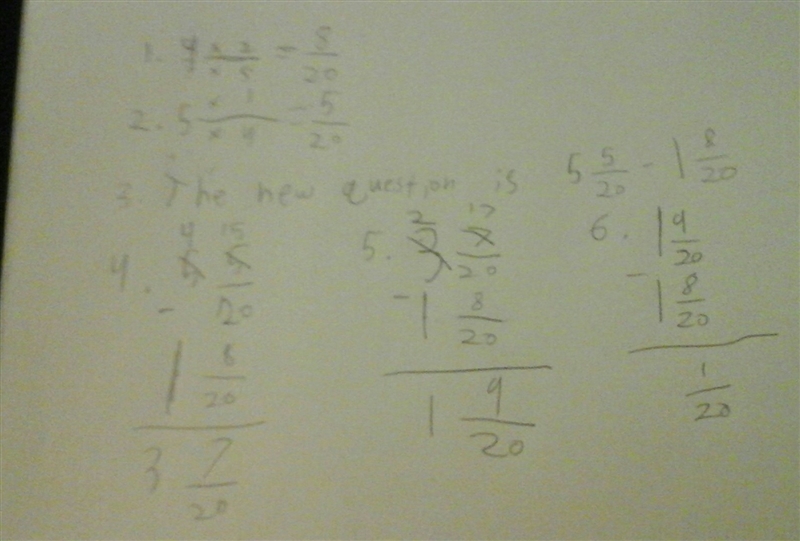 1. 4 × 2 / × 5 = 8/20
2. 5 × 1 / × 4 = 5/20
3. The new question is 5 5/20 - 1 8/20
4. 4 15
5 5/20
- 1 8/20
3 7/20
5. 2 17
3 7/20
- 1 8/20
1 9/20
6. 1 9/20
- 1 8/20
1/20